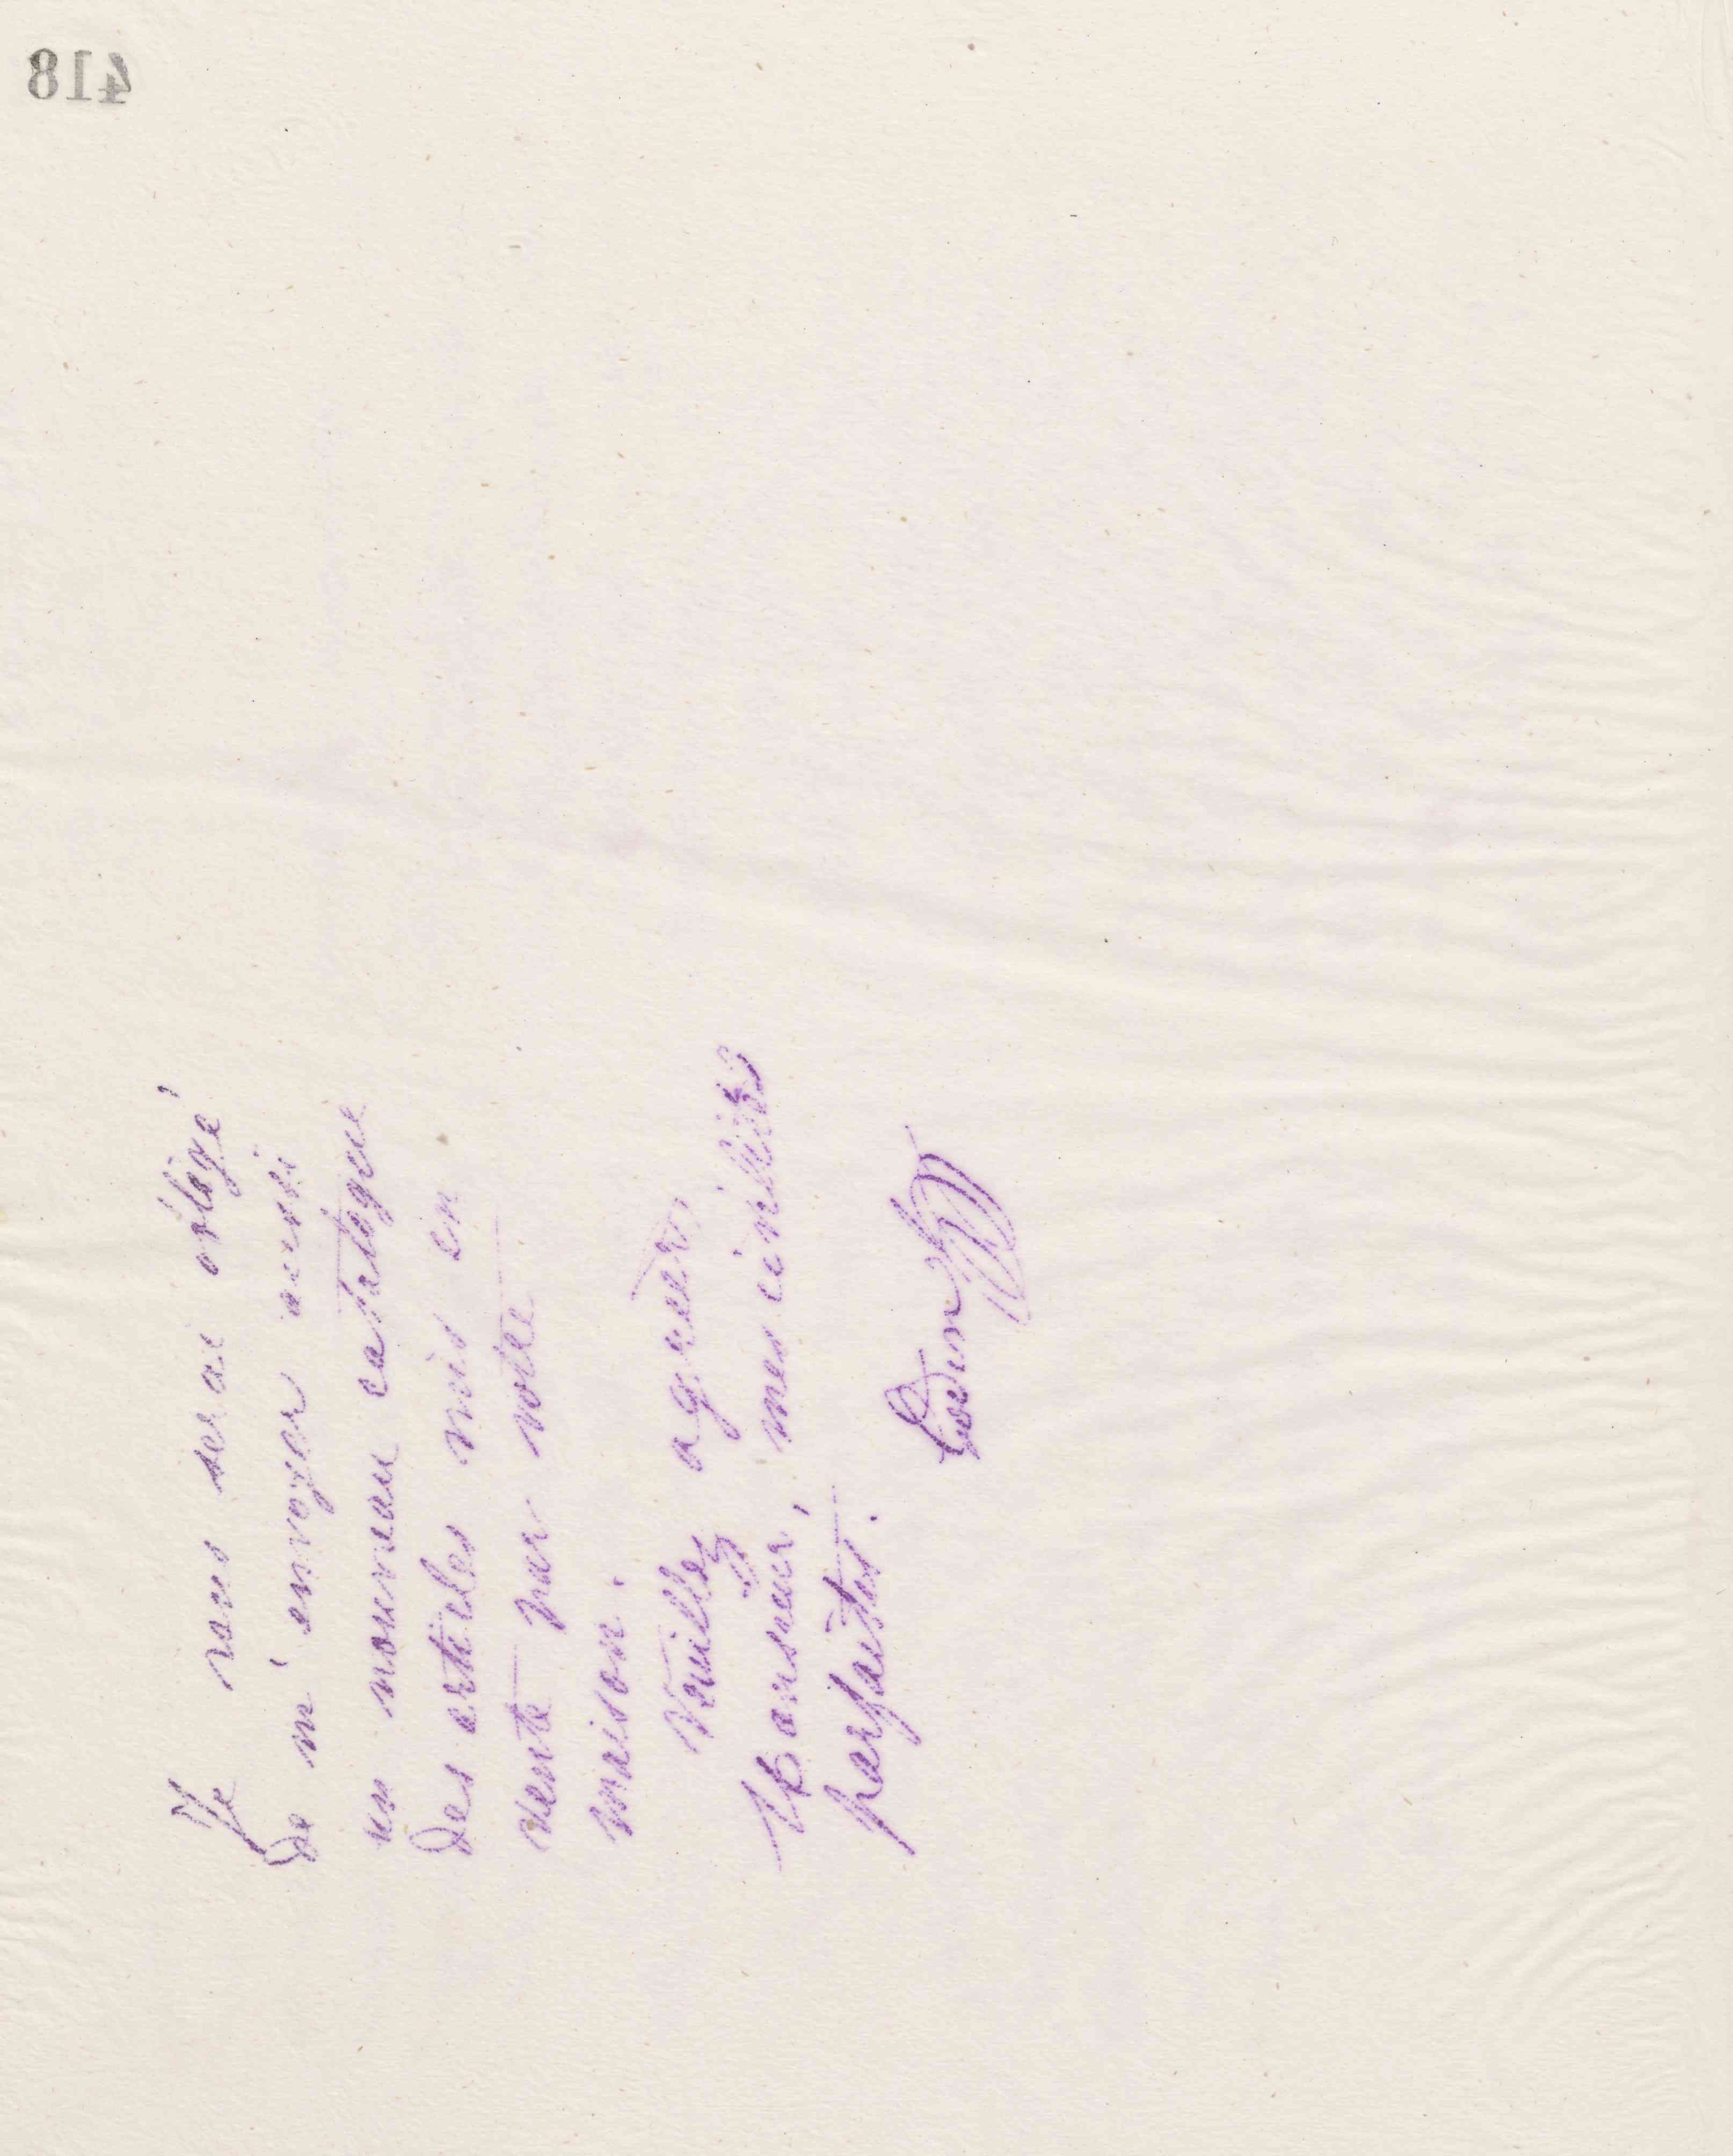 418
Je vous serai obligé
de m'envoyer aussi
un nouveau catalogue
des articles mis en
vente par votre
maison.
Veuillez agréer,
Monsieur, mes civilités
parfaites.
Godin